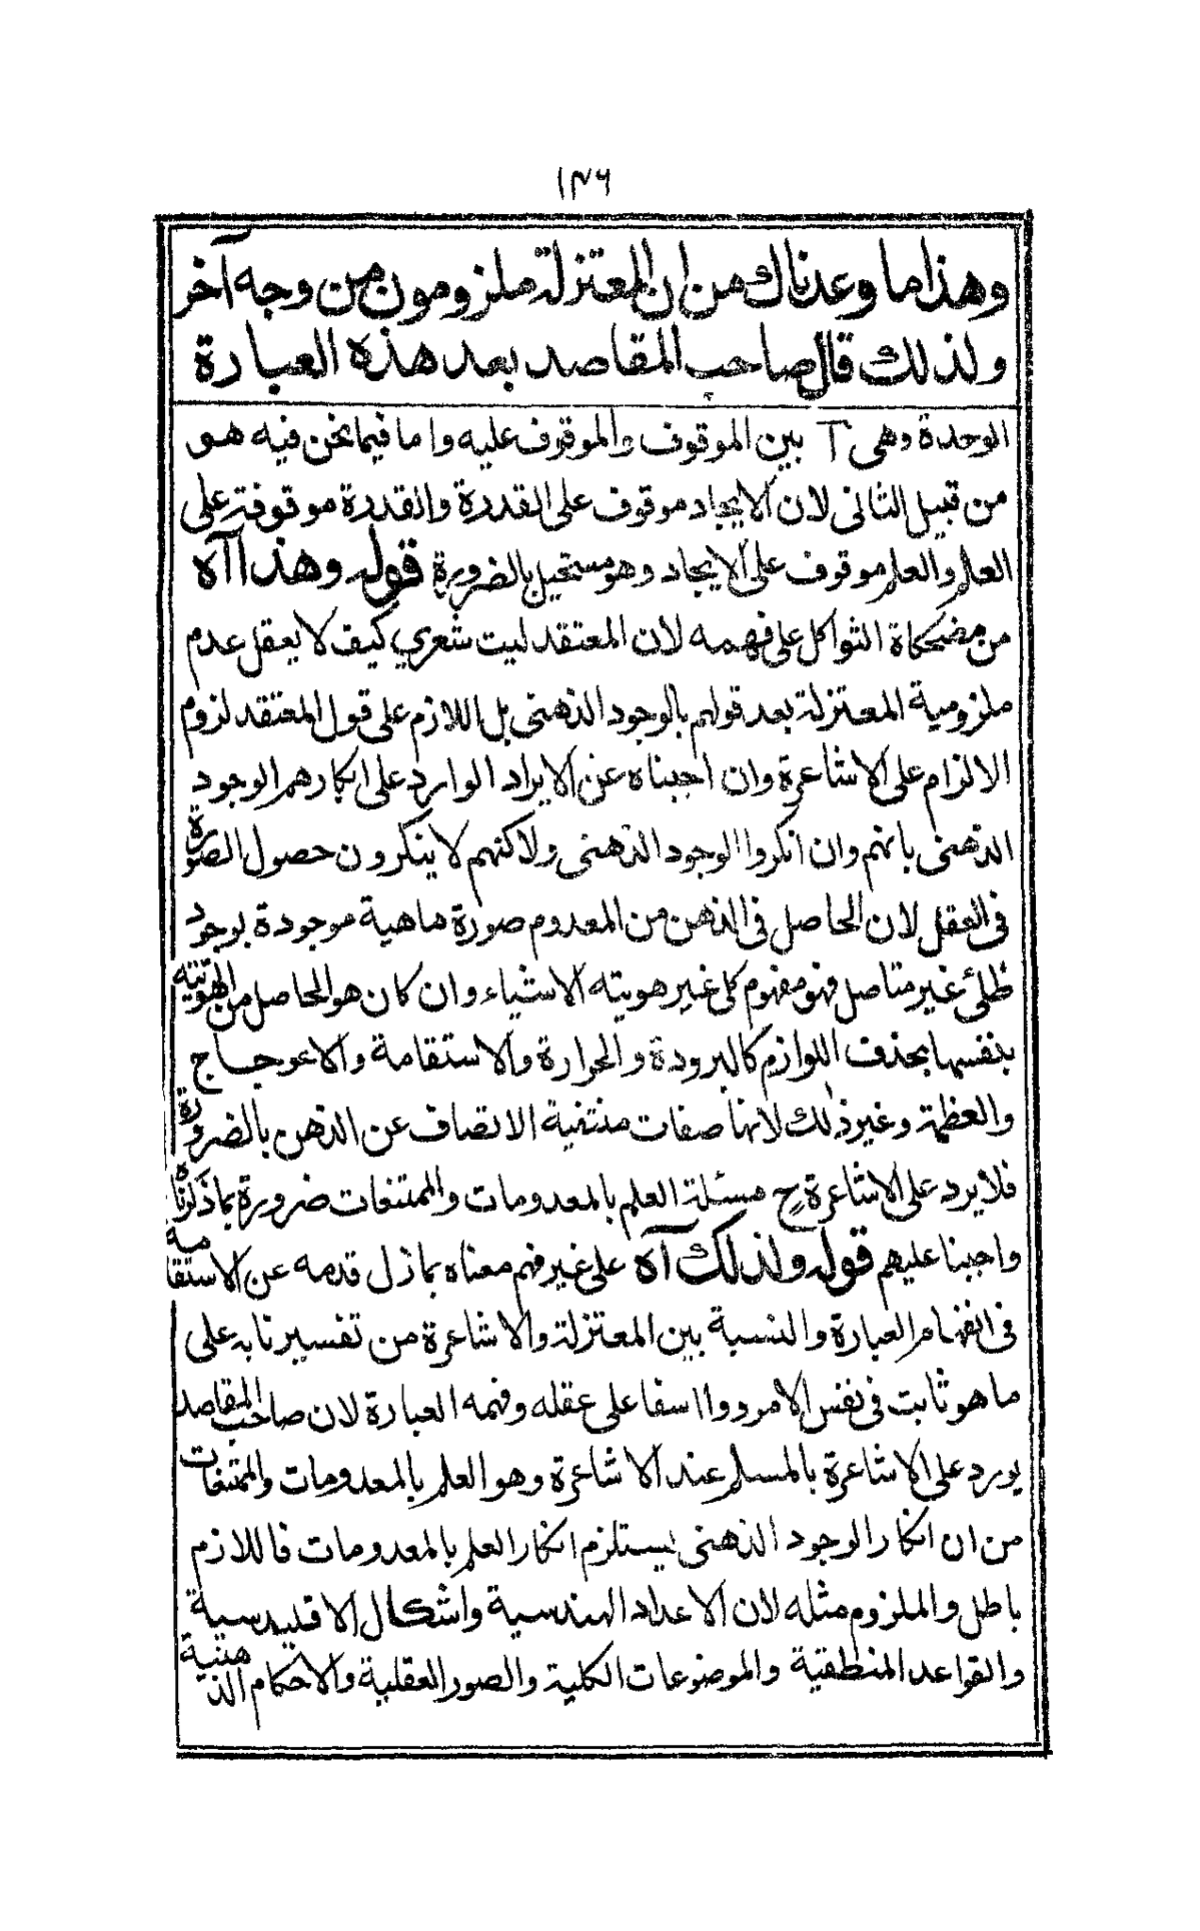 ١٣٦
وهذا ما وعدناك من ان المعتزلة ملزومون من وجه آخر
ولذلك قال صاحب المقاصد بعد هذه العبارة
الوحدة وهى بين الموقوف والموقوف عليه واما فيما نحن فيه هو
من قبيل الثانى لان الايجاد موقوف على القدرة والقدرة موقوفة على
العلم والعلم موقوف على الايجاد وهو مستحيل بالضرورة قوله وهذا آه
من مضحكاة الثواكل على فهمه لان المعتقد ليت شعري كيف لا يعقل عدم
ملزومية المعتزلة بعد قولهم بالوجود الذهنى بل اللازم على قول المعتقد لزوم
الالزام على الاشاعرة وان اجبناه عن الايراد الوارد على انكارهم الوجود
الذهنى بانهم وان انكروا الوجود الذهنى ولاكنهم لا ينكرون حصول الصورة
فى العقل لان الحاصل فى الذهن من المعدوم صورة ماهية موجودة بوجود
ظلئ غير متاصل فهو مفهوم كلى غير هويته الاشياء وان كان هو الحاصل من الهوتيته
بنفسها بحذف اللوازم كالبرودة والحرارة والاستقامة والاعوجاج
والعظمة وغير ذلك لانها صفات منتفية الاتصاف عن الذهن بالضرورة
فلا يرد على الاشاعرة ح مسئلة العلم بالمعدومات والممتنعات ضرورة بما ذكرناه
واجبنا عليهم قوله ولذلك آه على غير فهم معناه بما زل قدمه عن الاستقامه
فى انفهام العبارة والنسبة بين المعتزلة والاشاعرة من تفسيرنا به على
ما هو ثابت فى نفس الامر ووا اسفا على عقله وفهمه العبارة لان صاحب المقاصد
يورد على الاشاعرة بالمسلم عند الاشاعرة وهو العلم بالمعدومات والممتنعات
من ان انكار الوجود الذهنى يستلزم انكار العلم بالمعدومات فاللازم
باطل والملزوم مثله لان الاعداد الهندسية واشكال الاقليدسية
والقواعد المنطقية والموضوعات الكلية والصور العقلية والاحكام الذهنية